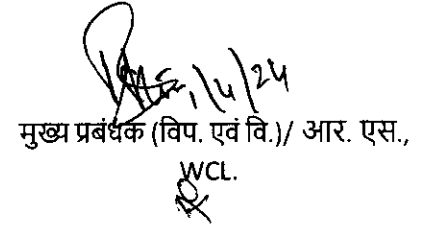 1/4/24
मुख्य प्रबंधक (विप. एवं वि.)/ आर. एस.,
WCL.